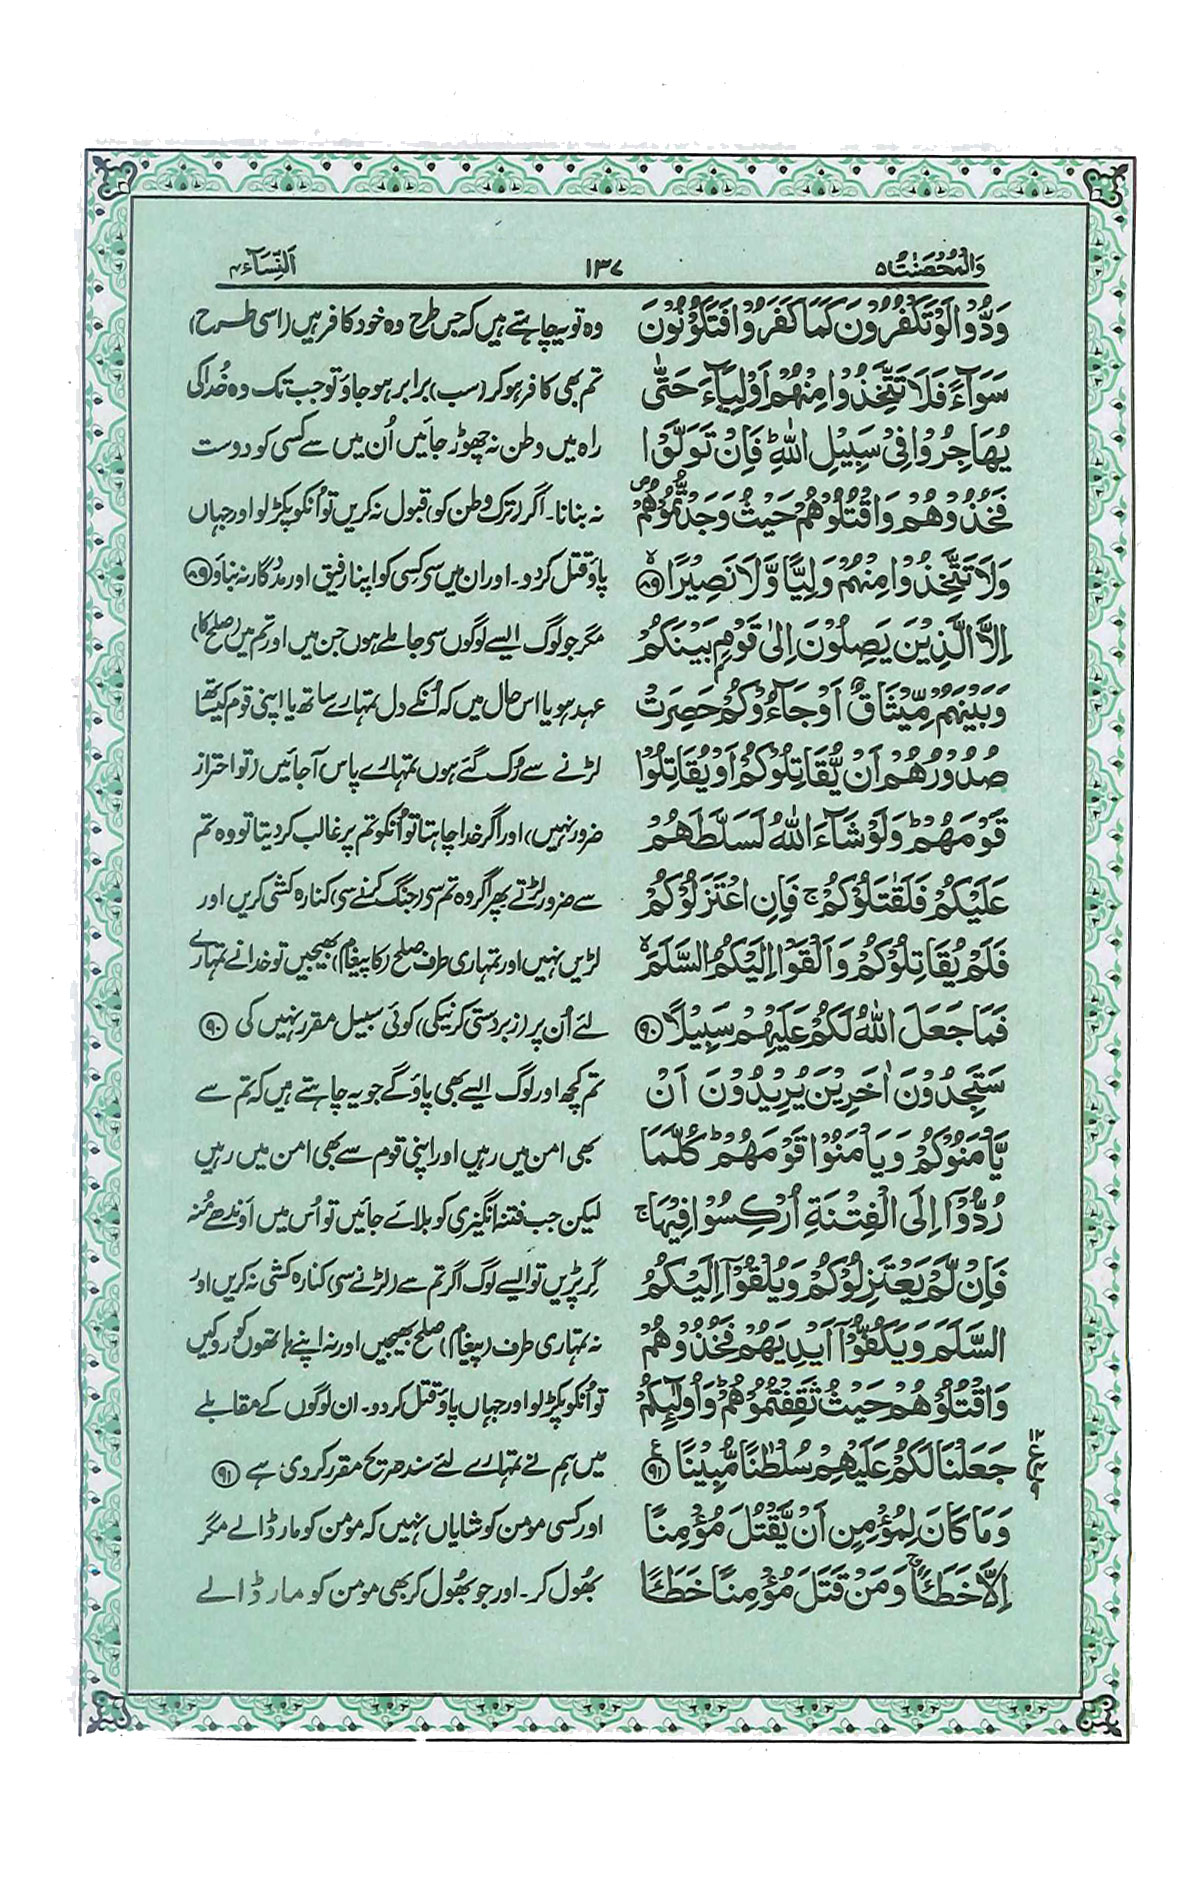 وَالْمُحْصَنٰتُ ۵
۱۳۷
اَلنِّسَآء ۴
وَدُّوْا لَوْ تَكْفُرُوْنَ كَمَا كَفَرُوْا فَتَكُوْنُوْنَ
سَوَآءً فَلَا تَتَّخِذُوْا مِنْهُمْ اَوْلِيَآءَ حَتّٰى
يُهَاجِرُوْا فِىْ سَبِيْلِ اللّٰهِ ؕ فَاِنْ تَوَلَّوْا
فَخُذُوْهُمْ وَاقْتُلُوْهُمْ حَيْثُ وَجَدْتُّمُوْهُمْ ۪
وَلَا تَتَّخِذُوْا مِنْهُمْ وَلِيًّا وَّلَا نَصِيْرًا ۙ ﴿۸۹﴾
اِلَّا الَّذِيْنَ يَصِلُوْنَ اِلٰى قَوْمٍۭ بَيْنَكُمْ
وَبَيْنَهُمْ مِّيْثَاقٌ اَوْ جَآءُوْكُمْ حَصِرَتْ
صُدُوْرُهُمْ اَنْ يُّقَاتِلُوْكُمْ اَوْ يُقَاتِلُوْا
قَوْمَهُمْ ؕ وَلَوْ شَآءَ اللّٰهُ لَسَلَّطَهُمْ
عَلَيْكُمْ فَلَقٰتَلُوْكُمْ ۚ فَاِنِ اعْتَزَلُوْكُمْ
فَلَمْ يُقَاتِلُوْكُمْ وَاَلْقَوْا اِلَيْكُمُ السَّلَمَ ۙ
فَمَا جَعَلَ اللّٰهُ لَكُمْ عَلَيْهِمْ سَبِيْلًا ﴿۹۰﴾
سَتَجِدُوْنَ اٰخَرِيْنَ يُرِيْدُوْنَ اَنْ
يَّاْمَنُوْكُمْ وَيَاْمَنُوْا قَوْمَهُمْ ؕ كُلَّمَا
رُدُّوْۤا اِلَى الْفِتْنَةِ اُرْكِسُوْا فِيْهَا ۚ
فَاِنْ لَّمْ يَعْتَزِلُوْكُمْ وَيُلْقُوْۤا اِلَيْكُمُ
السَّلَمَ وَيَكُفُّوْۤا اَيْدِيَهُمْ فَخُذُوْهُمْ
وَاقْتُلُوْهُمْ حَيْثُ ثَقِفْتُمُوْهُمْ ؕ وَاُولٰٓئِكُمْ
جَعَلْنَا لَكُمْ عَلَيْهِمْ سُلْطٰنًا مُّبِيْنًا ﴿۹۱﴾ ع
وَمَا كَانَ لِمُؤْمِنٍ اَنْ يَّقْتُلَ مُؤْمِنًا
اِلَّا خَطَـًٔا ۚ وَمَنْ قَتَلَ مُؤْمِنًا خَطَـًٔا
وہ تو یہ چاہتے ہیں کہ جس طرح وہ خود کافر ہیں (اسی طرح)
تم بھی کافر ہو کر (سب) برابر ہو جاؤ تو جب تک وہ خُدا کی
راہ میں وطن نہ چھوڑ جائیں اُن میں سے کسی کو دوست
نہ بنانا۔ اگر (ترک وطن کو) قبول نہ کریں تو اُنکو پکڑ لو اور جہاں
پاؤ قتل کر دو۔ اور ان میں سی کسی کو اپنا رفیق اور مددگار نہ بناؤ ﴿۸۹﴾
مگر جو لوگ ایسے لوگوں سی جا ملے ہوں جن میں اور تم میں (صلح کا)
عہد ہو یا اس حال میں کہ اُنکے دل تمہارے ساتھ یا اپنی قوم کیساتھ
لڑنے سے رُک گئے ہوں تمہارے پاس آ جائیں (تو احتراز
ضرور نہیں) اور اگر خدا چاہتا تو اُنکو تم پر غالب کر دیتا تو وہ تم
سے ضرور لڑتے پھر اگر وہ تم سی (جنگ کرنے سی) کنارہ کشی کریں اور
لڑیں نہیں اور تمہاری طرف صلح (کا پیغام) بھیجیں تو خدا نے تمہارے
لئے اُن پر (زبردستی کرنیکی) کوئی سبیل مقرر نہیں کی ﴿۹۰﴾
تم کچھ اور لوگ ایسے بھی پاؤ گے جو یہ چاہتے ہیں کہ تم سے
بھی امن میں رہیں اور اپنی قوم سے بھی امن میں رہیں
لیکن جب فتنہ انگیزی کو بلائے جائیں تو اُس میں اَوندھے مُنہ
گِر پڑیں تو ایسے لوگ اگر تم سے (لڑنے سی) کنارہ کشی نہ کریں اور
نہ تمہاری طرف (پیغام) صلح بھیجیں اور نہ اپنے ہاتھوں کو روکیں
تو اُنکو پکڑ لو اور جہاں پاؤ قتل کر دو۔ ان لوگوں کے مقابلے
میں ہم نے تمہارے لئے سند صریح مقرر کر دی ہے ﴿۹۱﴾
اور کسی مومن کو شایاں نہیں کہ مومن کو مار ڈالے مگر
بھُول کر۔ اور جو بھُول کر بھی مومن کو مار ڈالے